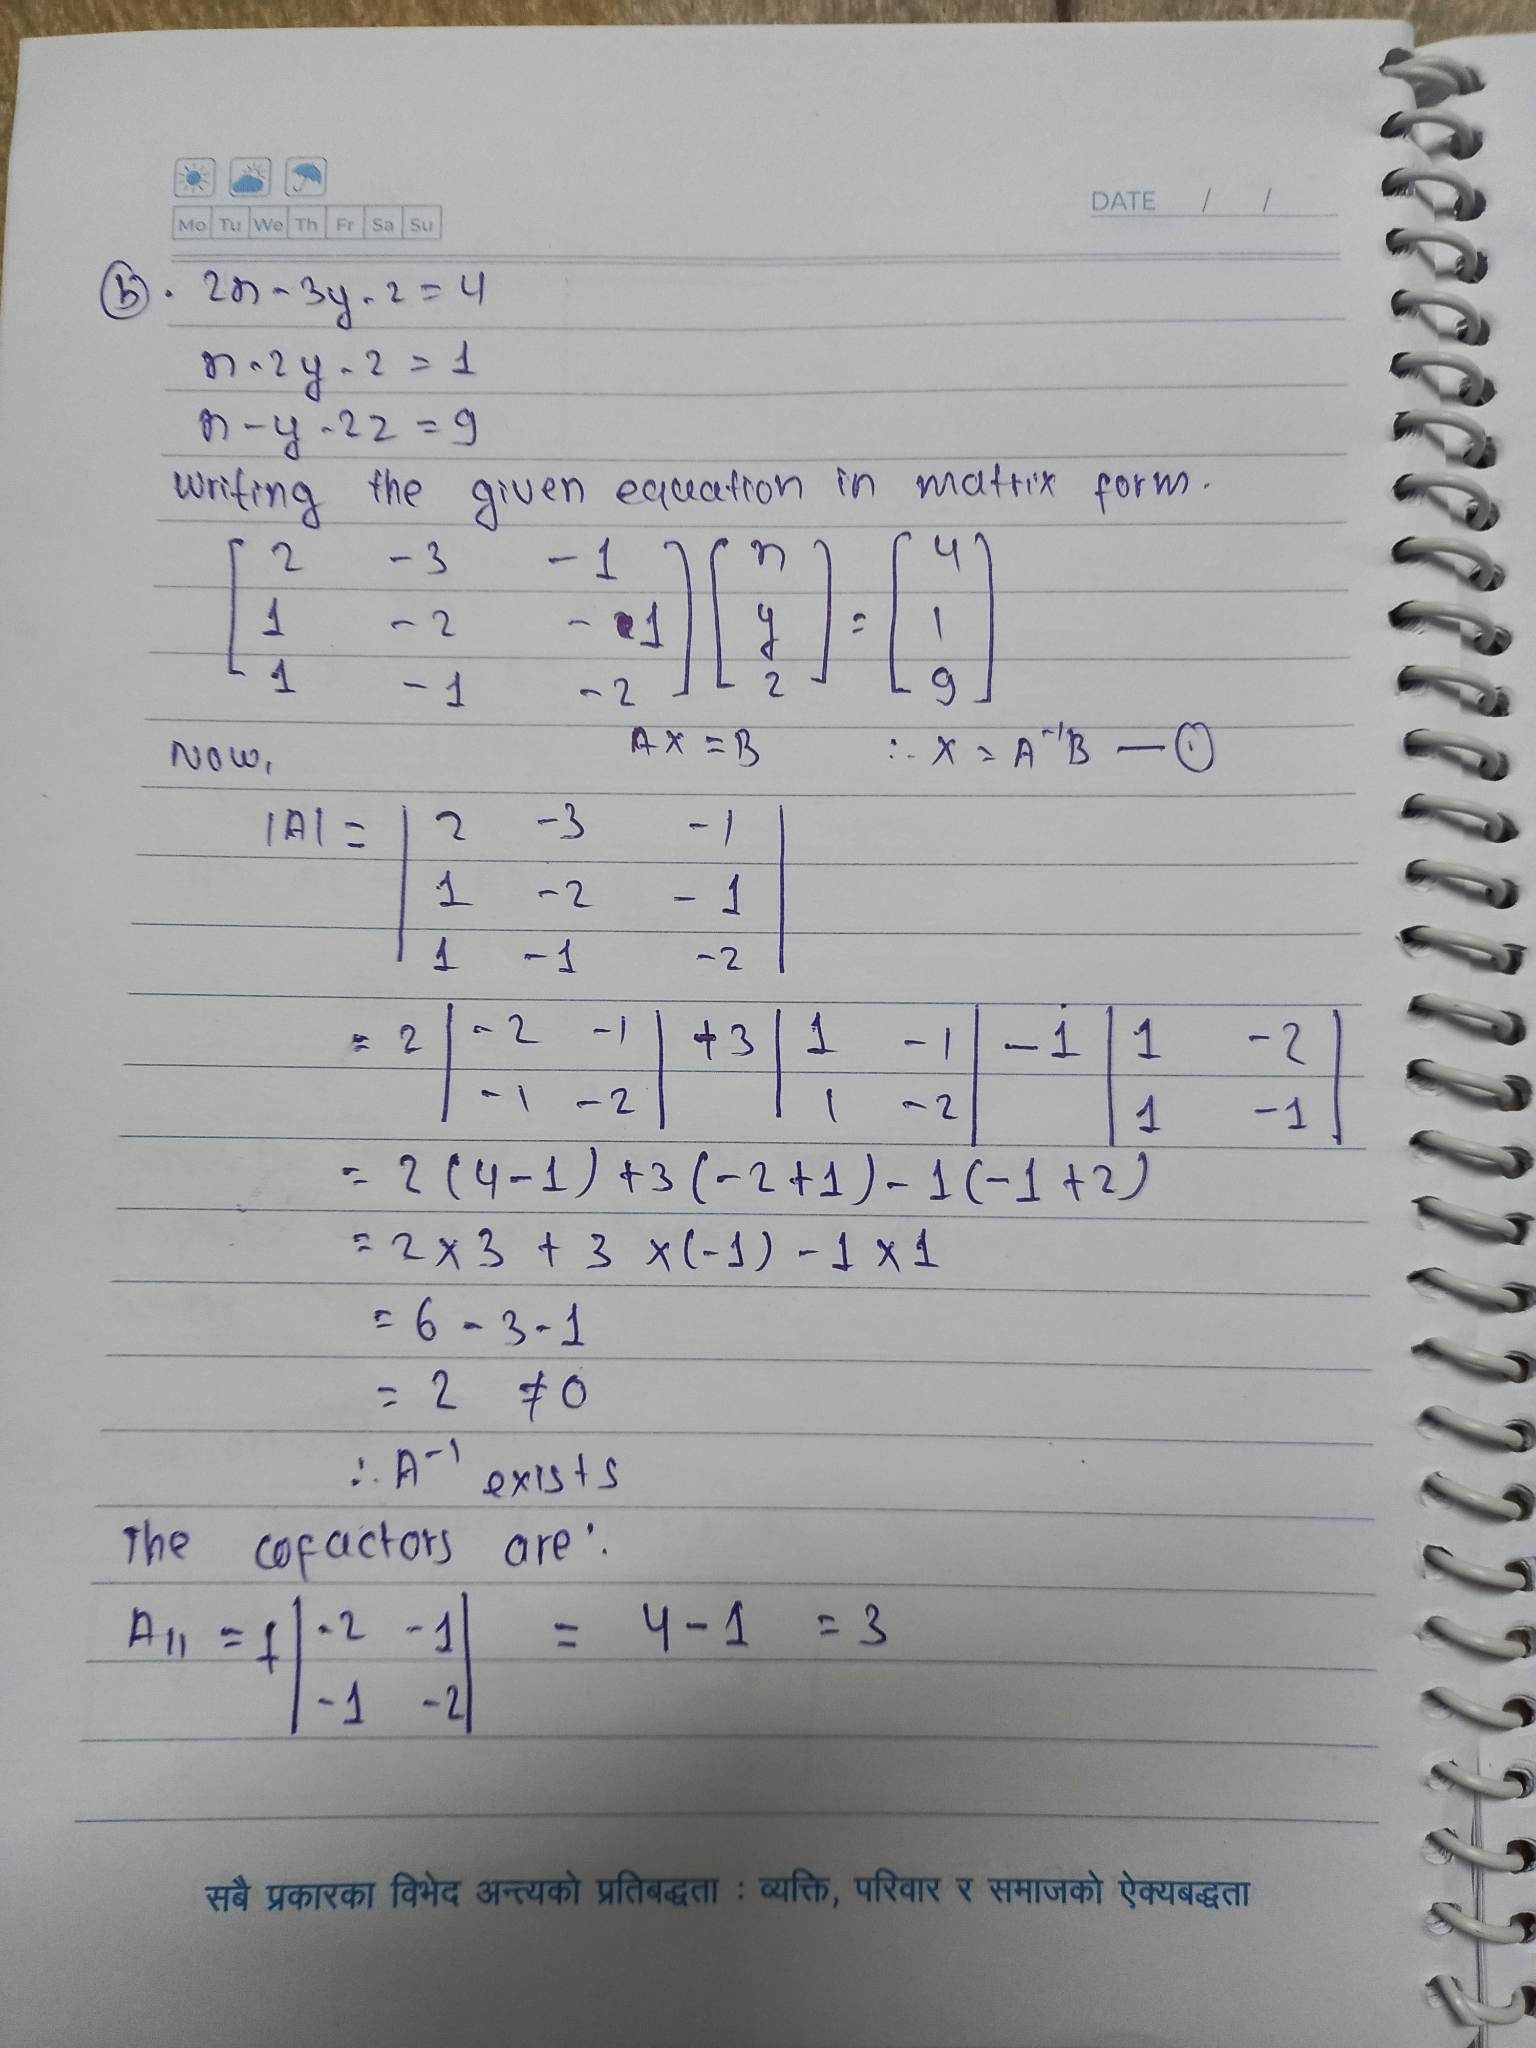 Mo Tu We Th Fr Sa Su
DATE / /
(b). 2x - 3y - z = 4
x - 2y - z = 1
x - y - 2z = 9
Writing the given equation in matrix form.
[2 -3 -1] [x] = [4]
[1 -2 -1] [y] [1]
[1 -1 -2] [z] [9]
AX = B ∴ X = A⁻¹B — ①
Now,
|A| = | 2 -3 -1 |
| 1 -2 -1 |
| 1 -1 -2 |
= 2 | -2 -1 | +3 | 1 -1 | -1 | 1 -2 |
| -1 -2 | | 1 -2 | | 1 -1 |
= 2 (4-1) +3 (-2+1) - 1 (-1+2)
= 2 × 3 + 3 × (-1) - 1 × 1
= 6 - 3 - 1
= 2 ≠ 0
∴ A⁻¹ exists
The cofactors are:
A₁₁ = + | -2 -1 | = 4 - 1 = 3
| -1 -2 |
सबै प्रकारका विभेद अन्त्यको प्रतिबद्धता : व्यक्ति, परिवार र समाजको ऐक्यबद्धता